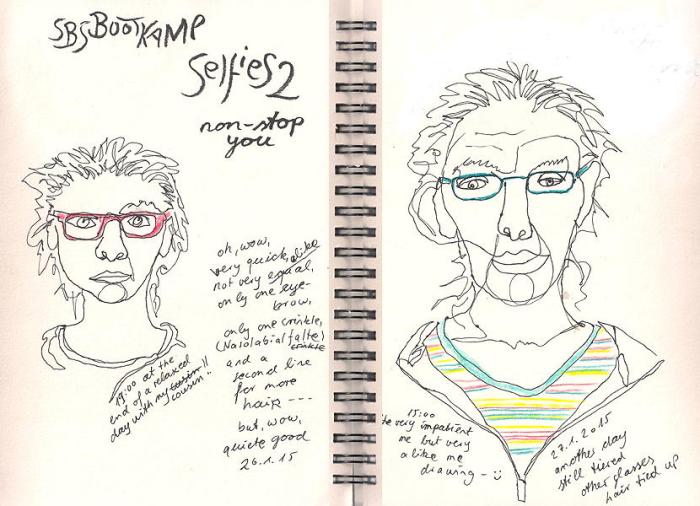 SBSBOOTKAMP
Selfies 2
non-stop
you
oh, wow,
very quick, alike
not very equal,
only one eye-
brow,
only one crinkle,
(Nasolabialfalte)
crinkle
and a
second line
for more
hair ---
but, wow,
quiete good
26.1.15
19:00 at the
end of a relaxed
day with my
cousin!!
15:00
very impatient
me but very
alike me
drawing -
27.1.2015
another day
still tiered
other glasses
hair tied up